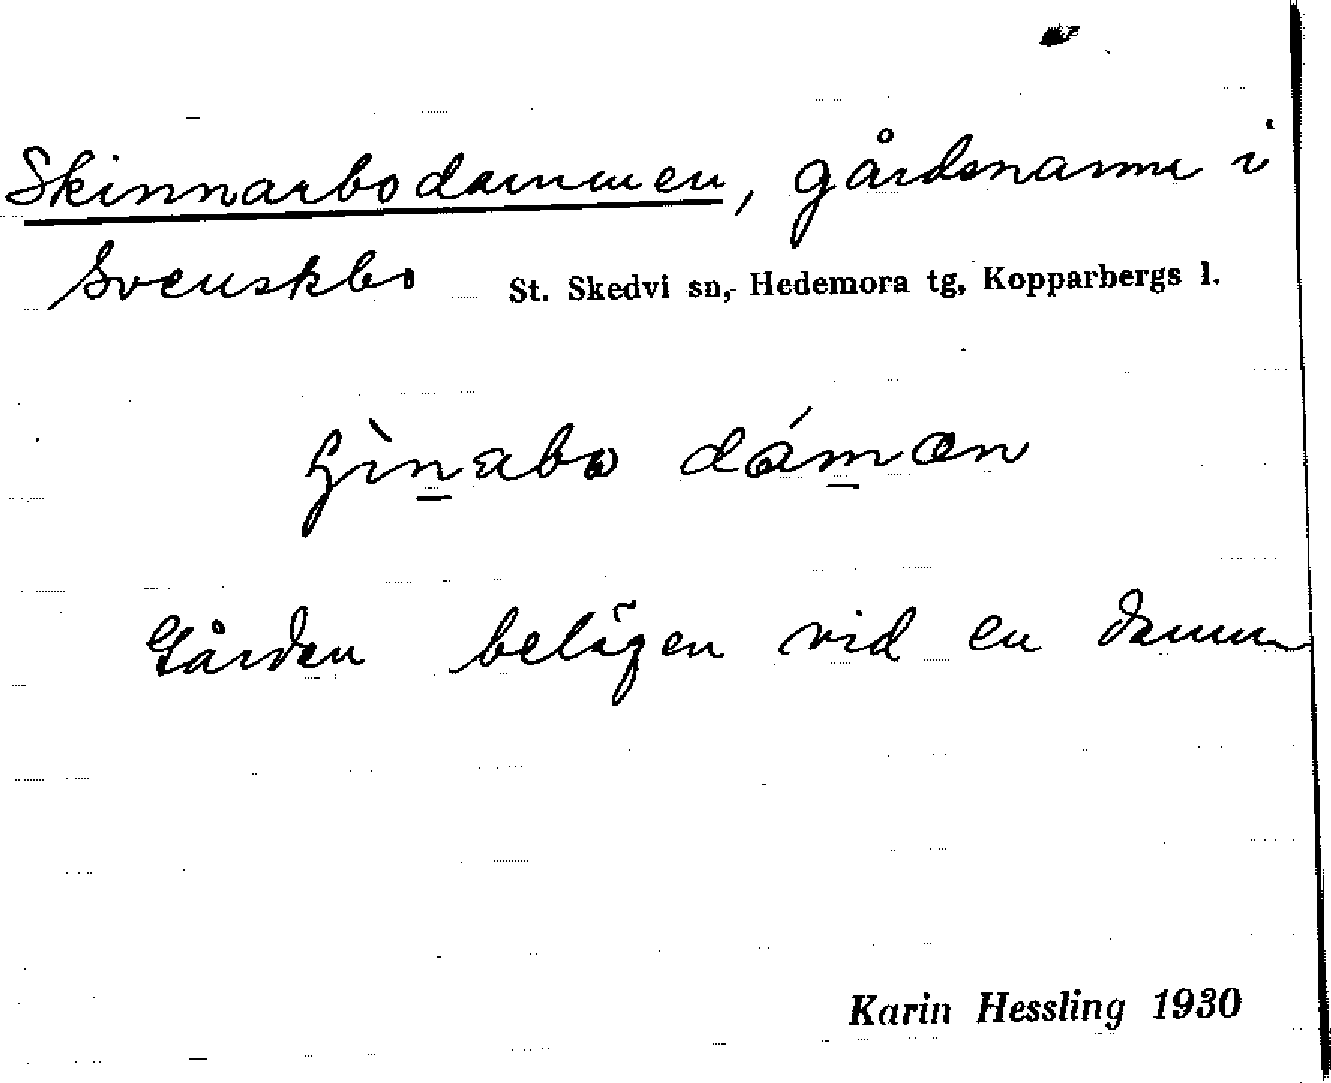 Skinnarbodammen, gårdsnamn i
Svenskbo St. Skedvi sn, Hedemora tg, Kopparbergs l.
ɧìn̲abo dám̲æn
Gården belägen vid en damm
Karin Hessling 1930